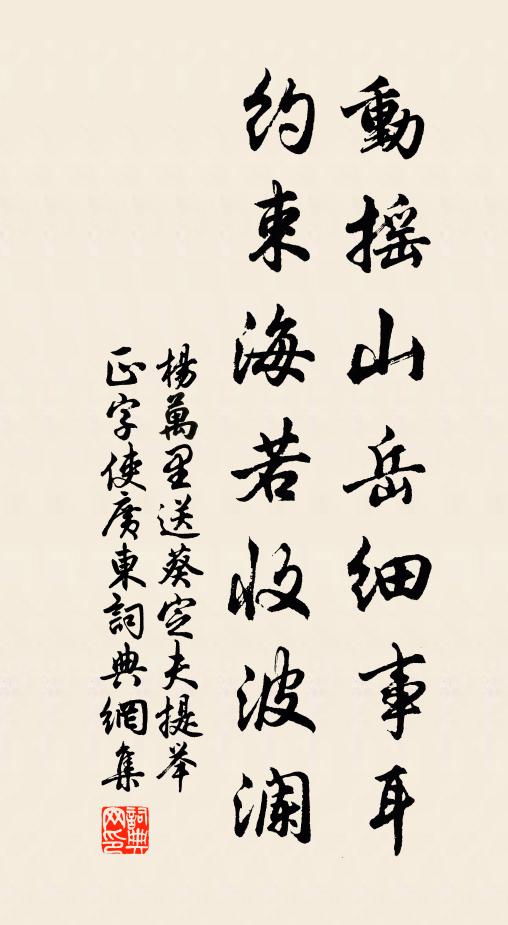 動摇山岳细事耳
約束海若收波澜
楊萬里送葵定夫提举
正字使廣東詞典網集
詞典
网印